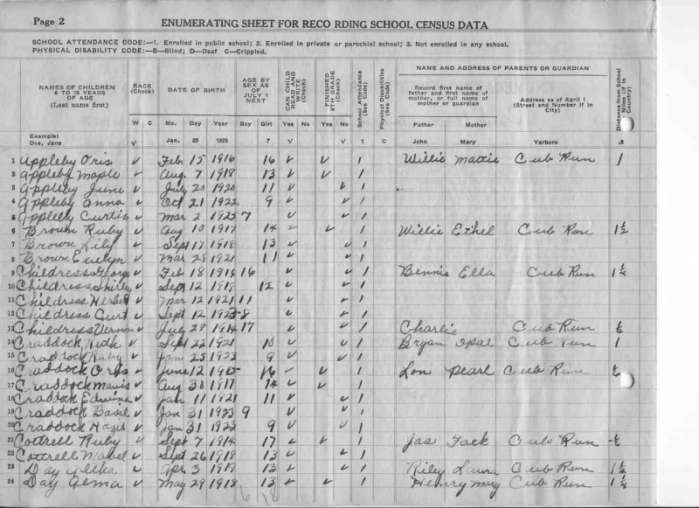 Page 2 ENUMERATING SHEET FOR RECO RDING SCHOOL CENSUS DATA
SCHOOL ATTENDANCE CODE:—1. Enrolled in public school; 2. Enrolled in private or parochial school; 3. Not enrolled in any school.
PHYSICAL DISABILITY CODE:—B—Blind; D—Deaf C—Crippled.
NAMES OF CHILDREN 6 TO 18 YEARS OF AGE (Last name first) RACE (Check) DATE OF BIRTH AGE BY SEX AS OF JULY 1 NEXT CAN CHILD READ AND WRITE (Check) FINISHED 8TH GRADE (Check) School Attendance (See Code) Physical Disabilities (See Code) NAME AND ADDRESS OF PARENTS OR GUARDIAN
Record first name of father and first name of mother, or full name of mother or guardian Address as of April 1 (Street and Number if in City) Distance from School in Miles (If in Country)
W C Mo. Day Year Boy Girl Yes No Yes No Father Mother
Example: Doe, Jane V Jan. 1925 7 V V 1 C John Mary Yarboro .8
1 Appleby Oris V Feb 15 1916 16 V V 1 Willie Mattie Cub Run 1
2 Appleby Maple V Aug. 7 1918 13 V V 1
3 Appleby June V July 1920 11 V V 1
4 Appleby Anna V Oct 21 1922 9 V V 1
5 Appleby Curtis V Mar 2 1925 7 V V 1
6 Brown Ruby V Aug 10 1917 14 V V 1 Willie Ethel Cub Run 1½
7 Brown Lily V Sept 17 1918 13 V V 1
8 Brown Evelyn V Mar 28 1921 11 V V 1
9 Childress George V Feb 18 1916 16 V V 1 Bennie Ella Cub Run 1¼
10 Childress Shirley V Sept 12 1919 12 V V 1
11 Childress V Mar 12 1921 11 V V 1
12 Childress Curt V Sept 12 1923 8 V V 1
13 Childress Vernon V July 28 1914 17 V V 1 Charlie Cub Run
14 Craddock V Sept 22 1921 10 V V 1 Bryan Opal Cub Run 1
15 Craddock Ruby V June 25 1922 9 V V 1
16 Craddock Oris V June 12 1915 16 V V 1 Lon Pearl Cub Run
17 Craddock Mavis V Aug 30 1917 14 V V 1
18 Craddock Edwina V Jan 11 1921 11 V V 1
19 Craddock Basil V Jan 31 1923 9 V V 1
20 Craddock Hazel V Jan 31 1923 9 V V 1
21 Cottrell Ruby V Sept 7 1914 17 V V 1 Jas Jack Cub Run
22 Cottrell Mabel V Sept 26 1918 13 V V 1
23 Day V Apr. 3 1919 13 V V 1 Riley Laura Cub Run 1½
24 Day Alma V May 29 1918 13 V V 1 Henry May Cub Run 1½